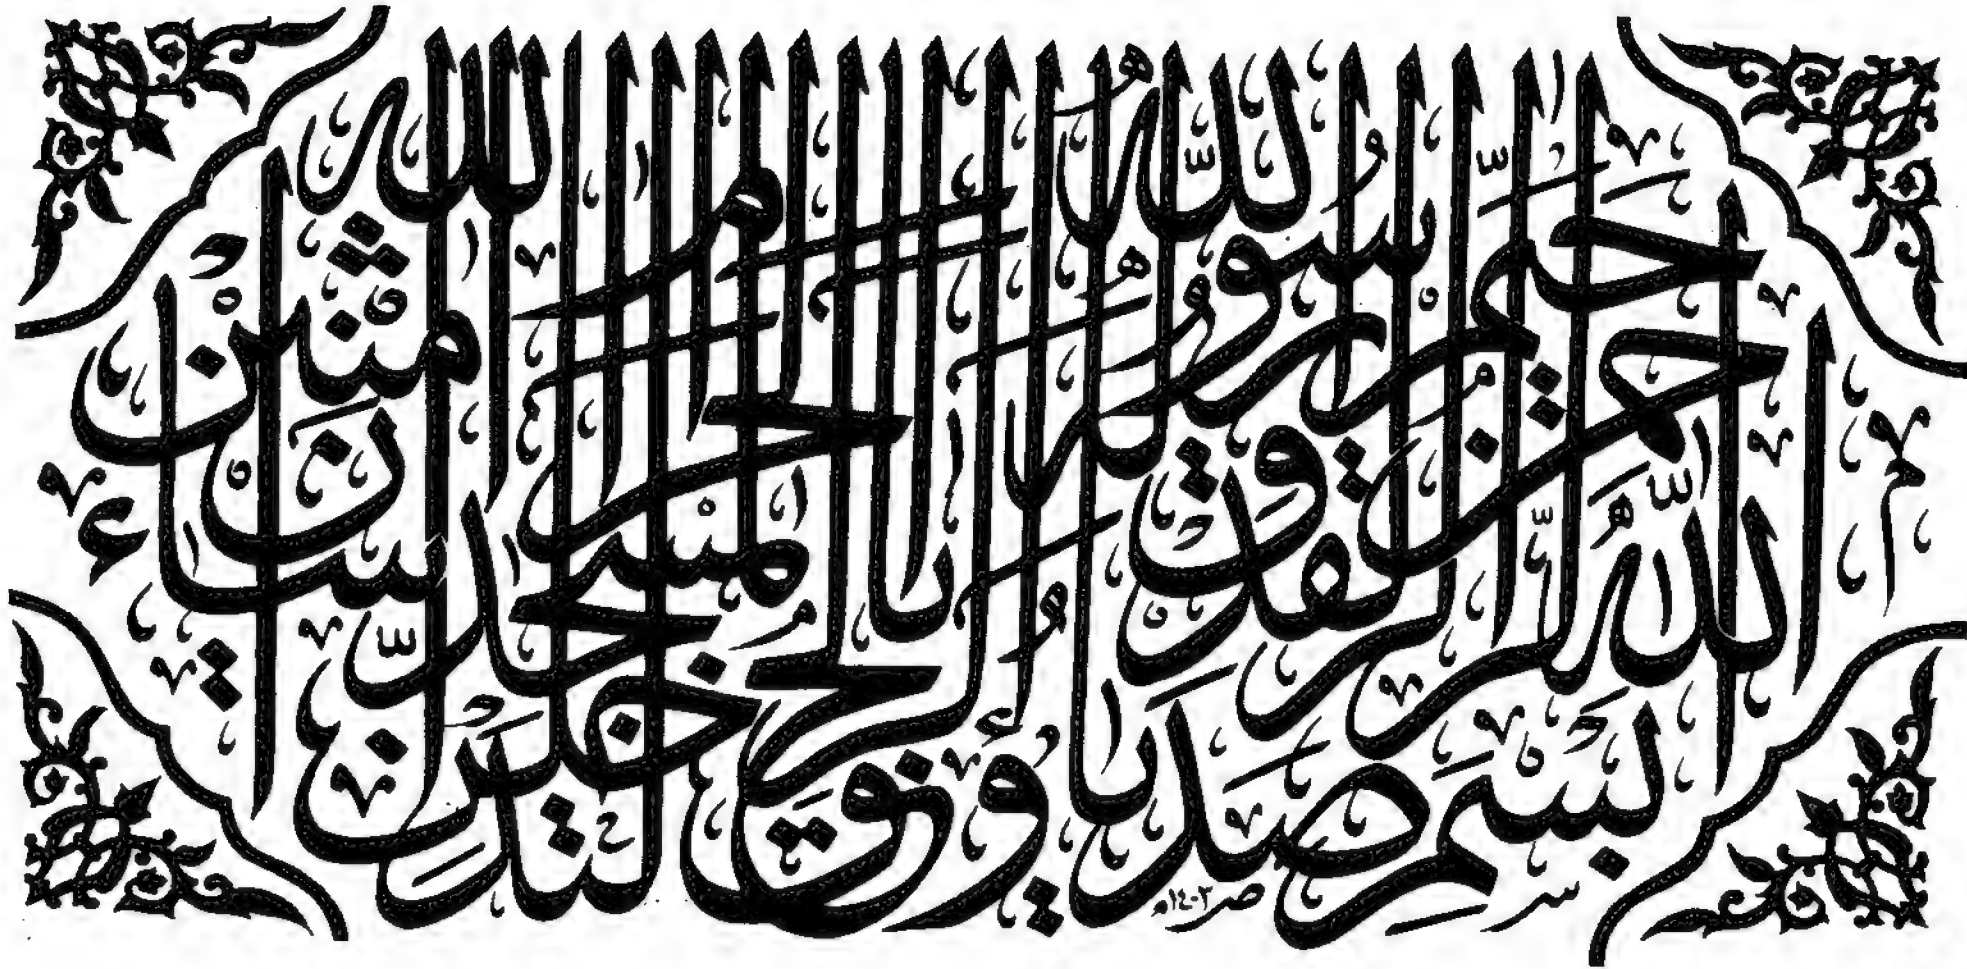 بِسْمِ اللّٰهِ الرَّحْمٰنِ الرَّحِيمِ
لَقَدْ صَدَقَ اللّٰهُ رَسُولَهُ الرُّؤْيَا بِالْحَقِّ لَتَدْخُلُنَّ الْمَسْجِدَ الْحَرَامَ إِنْ شَاءَ اللّٰهُ آمِنِينَ
١٤٠٣